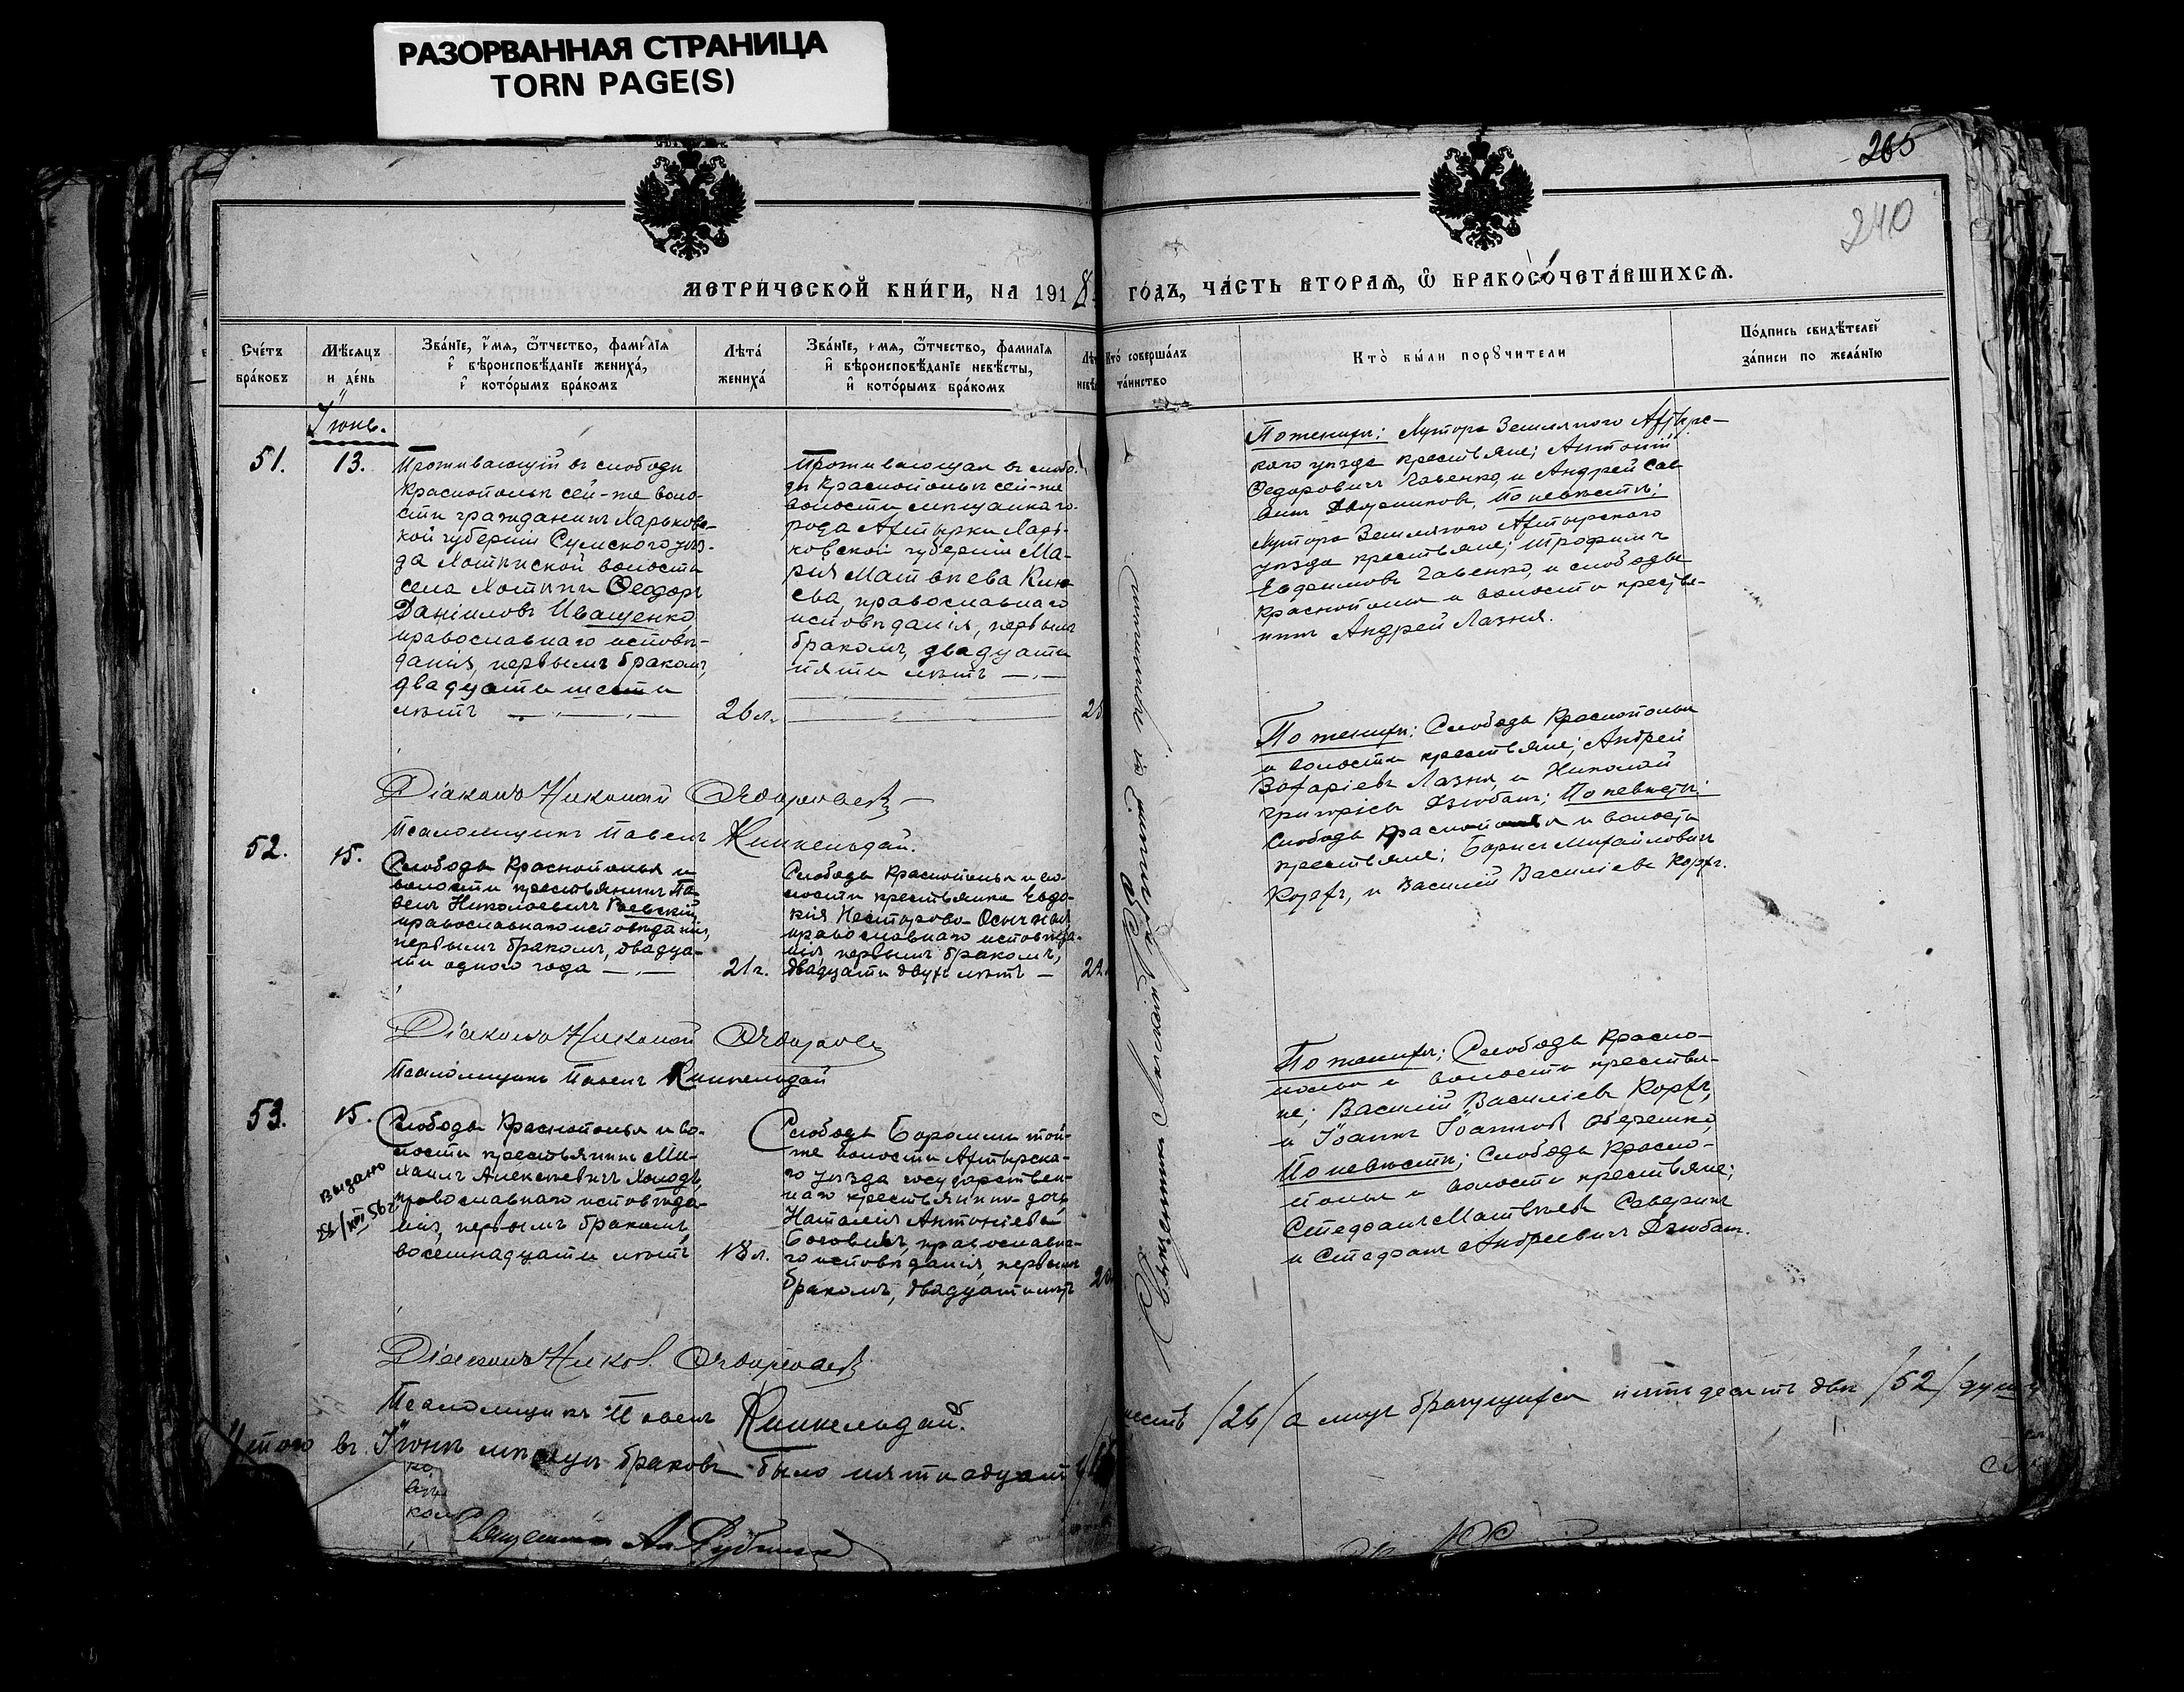 РАЗОРВАННАЯ СТРАНИЦА
TORN PAGE(S)
265
240
МЕТРИ́ЧЕСКОЙ КНИ́ГИ, НА 1918 ГО́ДЪ, ЧА́СТЬ ВТОРА́Ѧ, Ѽ БРАКОСОЧЕТА́ВШИХСѦ.
Сче́тъ
бра́ковъ
Мѣ́сяцъ
и де́нь
Зва́нїе, и́мя, ѻ҆́тчество, фами́лїя
и҆ вѣроисповѣ́данїе жениха́,
и҆ кото́рымъ бра́комъ
Лѣта́
жениха́
Зва́нїе, и́мя, ѻ҆́тчество, фами́лїя
и҆ вѣроисповѣ́данїе невѣ́сты,
и҆ кото́рымъ бра́комъ
Кто̀ соверша́лъ
та́инство
Кто̀ бы́ли поручи́тели
По́дпись свидѣ́телей
за́писи по жела́нїю
Іюнь.
51.
13.
Проживающій въ слободѣ
Краснопольѣ сей-же воло-
сти гражданинъ Харьковс-
кой губерніи Сумского уѣз-
да Хотѣнской волости
села Хотѣни Ѳеодоръ
Даніиловъ Иващенко,
православнаго исповѣ-
данія, первымъ бракомъ,
двадцати шести
лѣтъ
26 л.
Проживающая въ слобо-
дѣ Краснопольѣ сей-же
волости мѣщанка го-
рода Ахтырки Харь-
ковской губерніи Ма-
рія Матвѣева
православнаго
исповѣданія, первымъ
бракомъ, двадцати
пяти лѣтъ
25
По женихѣ: Хутора Земляного Ахтырс-
каго уѣзда крестьяне; Антоній
Ѳедоровичъ и Андрей Сав
По невѣстѣ:
Хутора Земляного Ахтырского
уѣзда крестьяне; Трофимъ
Евдоимовъ и слободы
Краснополья и волости крестья-
нинъ Андрей Лазня.
Діаконъ Николай
Псаломщикъ Павелъ
52.
15.
Слободы Краснополья и
волости крестьянинъ Па-
велъ Николаевичъ Раевскій
православнаго исповѣданія,
первымъ бракомъ, двадца-
ти одного года
21 г.
Слободы Краснополья и во-
лости крестьянка Евдо-
кія Несторова Осычная
православнаго исповѣда-
нія, первымъ бракомъ,
двадцати двухъ лѣтъ
22
По женихѣ: Слободы Краснополья
и волости крестьяне; Андрей
Захаріевъ Лазня, и Николай
Григоріевъ Дзюбанъ; По невѣстѣ:
Слободы Краснополья и волости
крестьяне; Борисъ Михайловичъ
Коржъ, и Василій Василіевъ Коржъ.
Діаконъ Николай
Псаломщикъ Павелъ
53.
15.
Выдано
Слободы Краснополья и во-
лости крестьянинъ Ми-
хаилъ Алексѣевичъ Холодъ,
православнаго исповѣда-
нія, первымъ бракомъ,
восемнадцати лѣтъ
18 л.
Слободы Боромли той-
же волости Ахтырска-
го уѣзда государствен-
наго крестьянина дочь
Наталія Антоніева
православна-
го исповѣданія, первымъ
бракомъ, двадцати лѣтъ
20
По женихѣ; Слободы Красно-
полья и волости крестья-
не; Василій Василіевъ Коржъ,
и Іоаннъ Іоанновъ
По невѣстѣ; Слободы Красно-
полья и волости крестьяне;
Стефанъ Матвѣевъ Северинъ
и Стефанъ Андреевичъ Дзюбанъ.
Діаконъ Никол.
Псаломщикъ Павелъ
Итого въ Іюнѣ мѣсяцѣ браковъ было
/26/ а лицъ брачущихся пятьдесятъ два /52/ душ
Священникъ